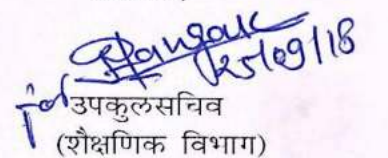 25/09/18
for उपकुलसचिव
(शैक्षणिक विभाग)